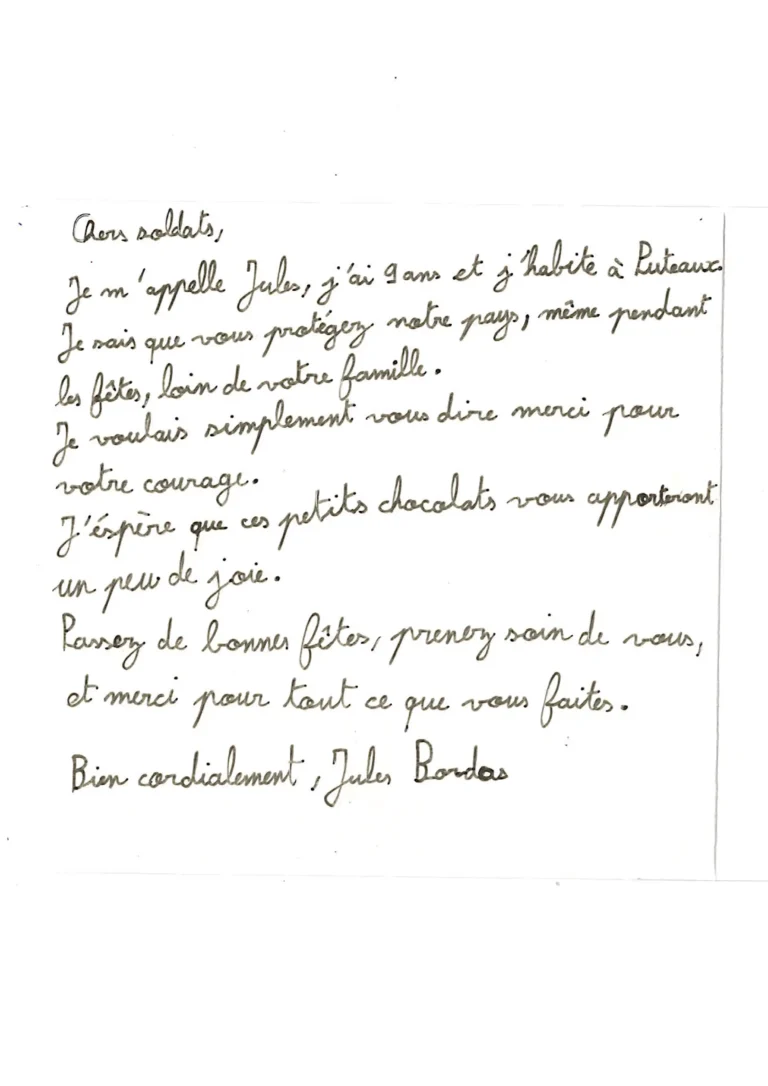 Chers soldats,
Je m'appelle Jules, j'ai 9 ans et j'habite à Puteaux.
Je sais que vous protégez notre pays, même pendant
les fêtes, loin de votre famille.
Je voulais simplement vous dire merci pour
votre courage.
J'éspère que ces petits chocolats vous apporteront
un peu de joie.
Passez de bonnes fêtes, prenez soin de vous,
et merci pour tout ce que vous faites.
Bien cordialement, Jules Bordas